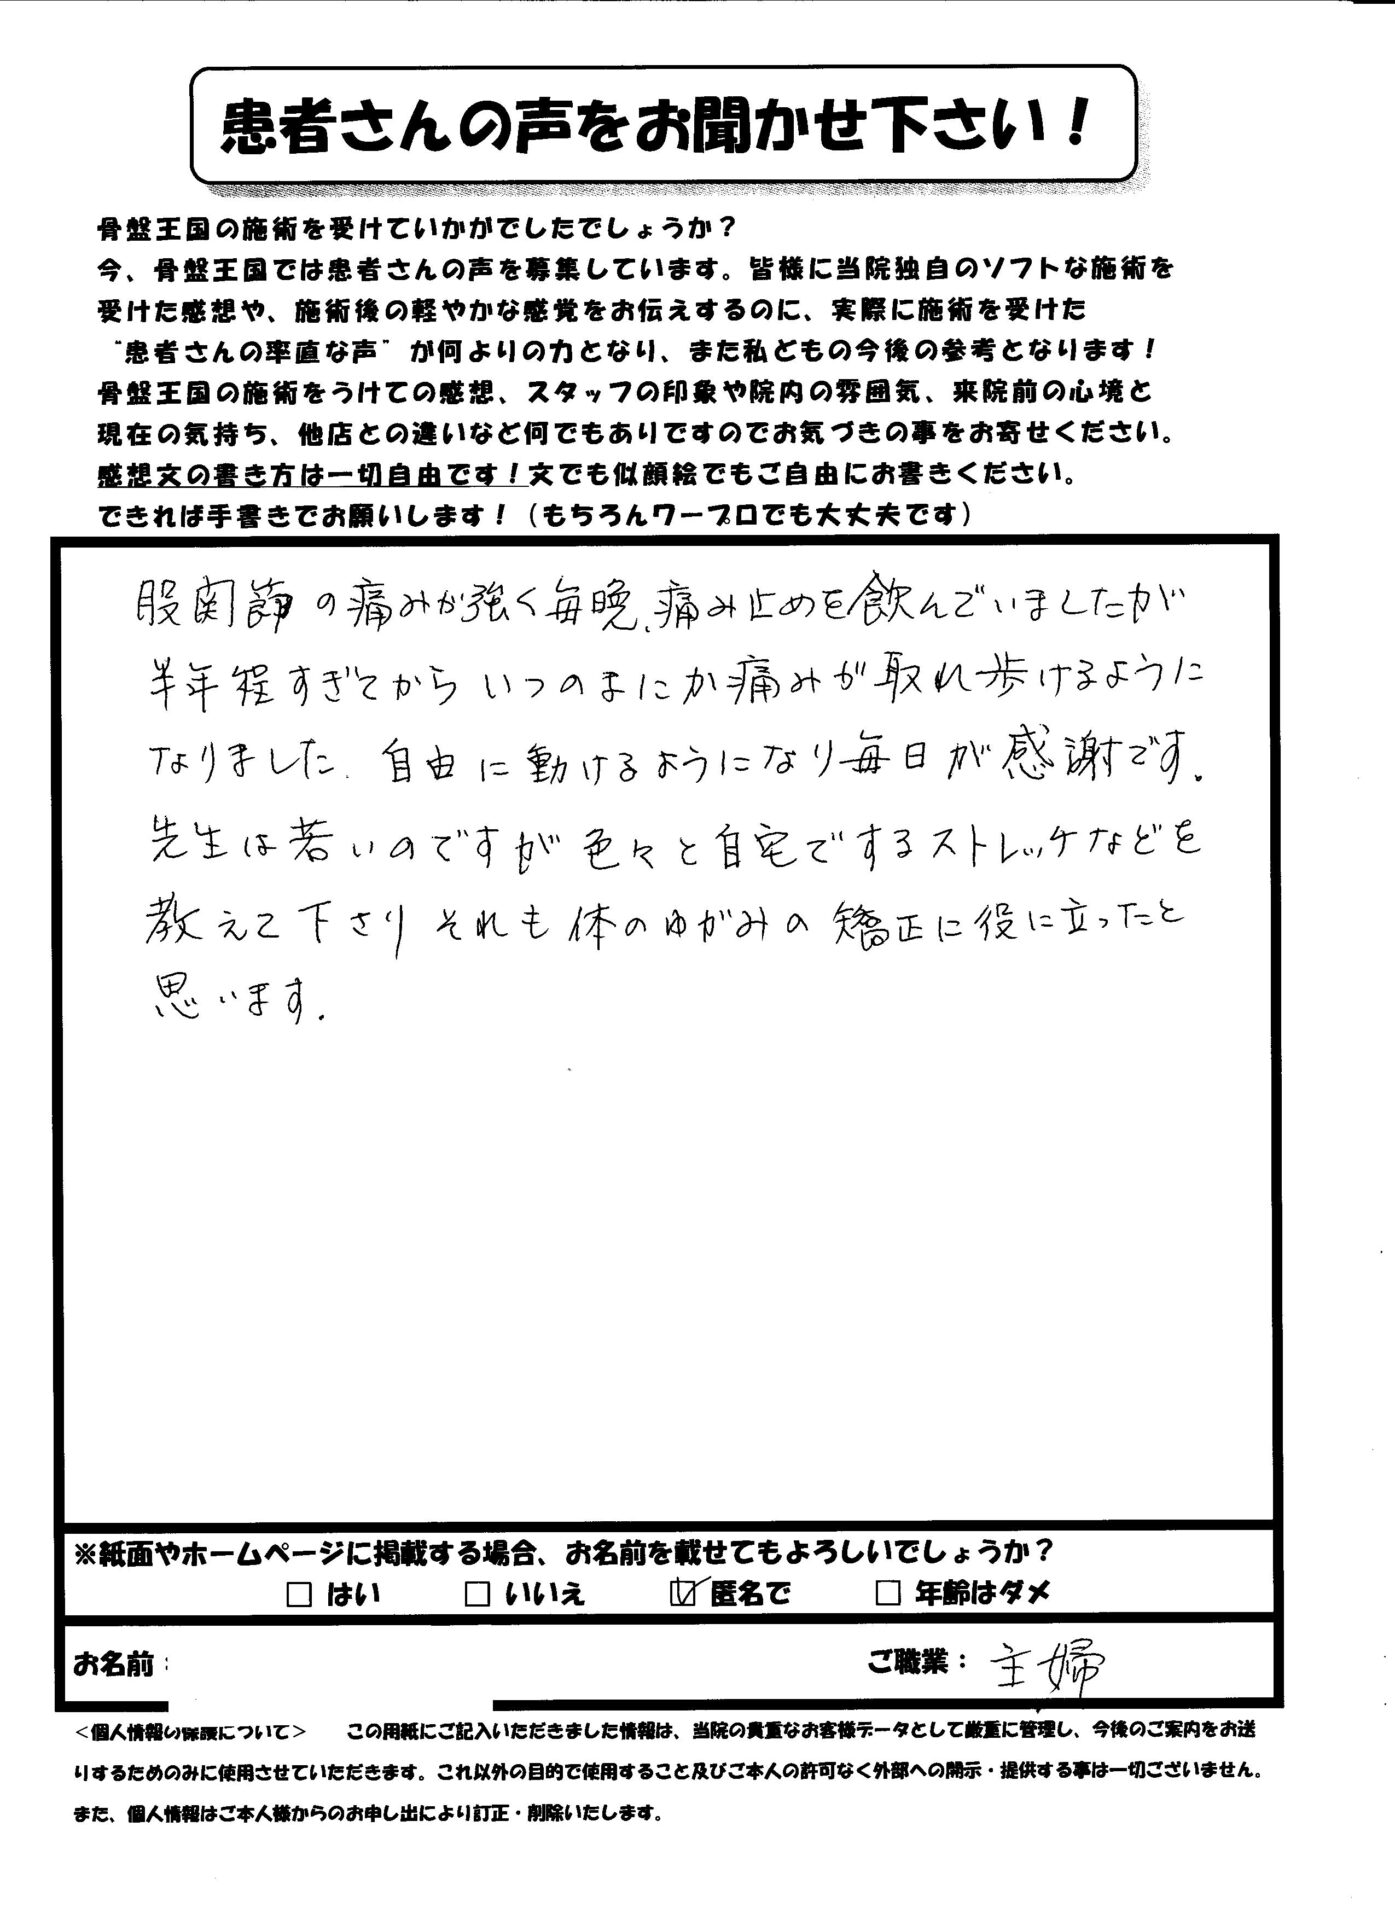 患者さんの声をお聞かせ下さい！
骨盤王国の施術を受けていかがでしたでしょうか？
今、骨盤王国では患者さんの声を募集しています。皆様に当院独自のソフトな施術を
受けた感想や、施術後の軽やかな感覚をお伝えするのに、実際に施術を受けた
“患者さんの率直な声”が何よりの力となり、また私どもの今後の参考となります！
骨盤王国の施術をうけての感想、スタッフの印象や院内の雰囲気、来院前の心境と
現在の気持ち、他店との違いなど何でもありですのでお気づきの事をお寄せください。
感想文の書き方は一切自由です！文でも似顔絵でもご自由にお書きください。
できれば手書きでお願いします！（もちろんワープロでも大丈夫です）
股関節の痛みが強く毎晩、痛み止めを飲んでいましたが
半年程すぎてからいつのまにか痛みが取れ歩けるように
なりました。自由に動けるようになり毎日が感謝です。
先生は若いのですが色々と自宅でするストレッチなどを
教えて下さりそれも体のゆがみの矯正に役に立ったと
思います。
※紙面やホームページに掲載する場合、お名前を載せてもよろしいでしょうか？
□ はい □ いいえ ☑ 匿名で □ 年齢はダメ
お名前： ご職業： 主婦
＜個人情報の保護について＞ この用紙にご記入いただきました情報は、当院の貴重なお客様データとして厳重に管理し、今後のご案内をお送
りするためのみに使用させていただきます。これ以外の目的で使用すること及びご本人の許可なく外部への開示・提供する事は一切ございません。
また、個人情報はご本人様からのお申し出により訂正・削除いたします。